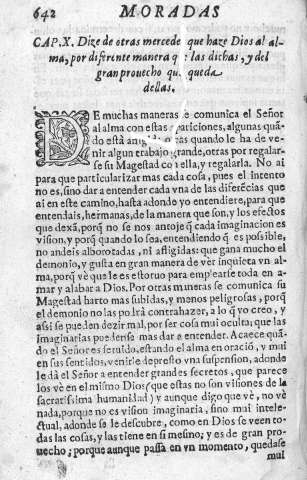 642 MORADAS
CAP. X. Dize de otras mercede que haze Dios al al
ma, por diferente manera q las dichas, y del
gran prouecho qu queda
dellas.
DE muchas maneras se comunica el Señor
al alma con estas apariciones, algunas quã
do està otras quando le ha de ve
nir algun trabajo grande, otras por regalar-
se su Magestad co ella, y regalarla. No ai
para que particularizar mas cada cosa, pues el intento
no es, sino dar a entender cada vna de las diferẽcias que
ai en este camino, hasta adonde yo entendiere, para que
entendais, hermanas, de la manera que son, y los efectos
que dexã, porq̃ no se nos antoje q̃ cada imaginacion es
vision, y porq̃ quando lo sea, entendiendo q̃ es posible,
no andeis alborotadas, ni afligidas: que gana mucho el
demonio, y gusta en gran manera de ver inquieta vn al
ma, porq̃ vè que le es estoruo para emplearse toda en a-
mar y alabar a Dios. Por otras maneras se comunica su
Magestad harto mas subidas, y menos peligrosas, porq̃
el demonio no las podrà contrahazer, a lo q̃ yo creo, y
assi se pueden dezir mal, por ser cosa mui oculta, que las
imaginarias puedense mas dar a entender. Acaece quã-
do el Señor es seruido, estando el alma en oraciõ, y mui
en sus sentidos, venirle de presto vna suspension, adonde
le dà el Señor a entender grandes secretos, que parece
los vè en el mismo Dios (que estas no son visiones de la
sacratissima humanidad) y aunque digo que vè, no vè
nada, porque no es vision imaginaria, sino mui intele-
ctual, adonde se le descubre, como en Dios se veen to-
das las cosas, y las tiene en si mesmo; y es de gran pro-
uecho; porque aunque passa en vn momento, quedase
mui